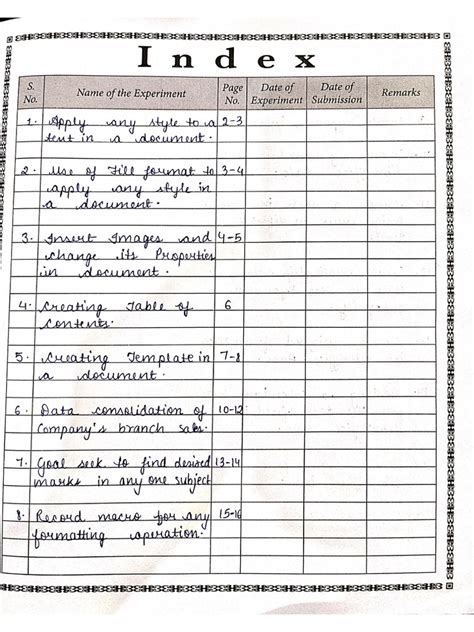 Index
S. No. Name of the Experiment Page No. Date of Experiment Date of Submission Remarks
1. Apply any style to a 2-3
text in a document.
2. Use of Fill format to 3-4
apply any style in
a document.
3. Insert Images and 4-5
change its Properties
in document.
4. Creating Table of 6
Contents.
5. Creating Template in 7-8
a document.
6. Data consolidation of 10-12
Company's branch sales.
7. Goal seek to find desired 13-14
marks in any one subject
8. Record macro for any 15-16
formatting operation.